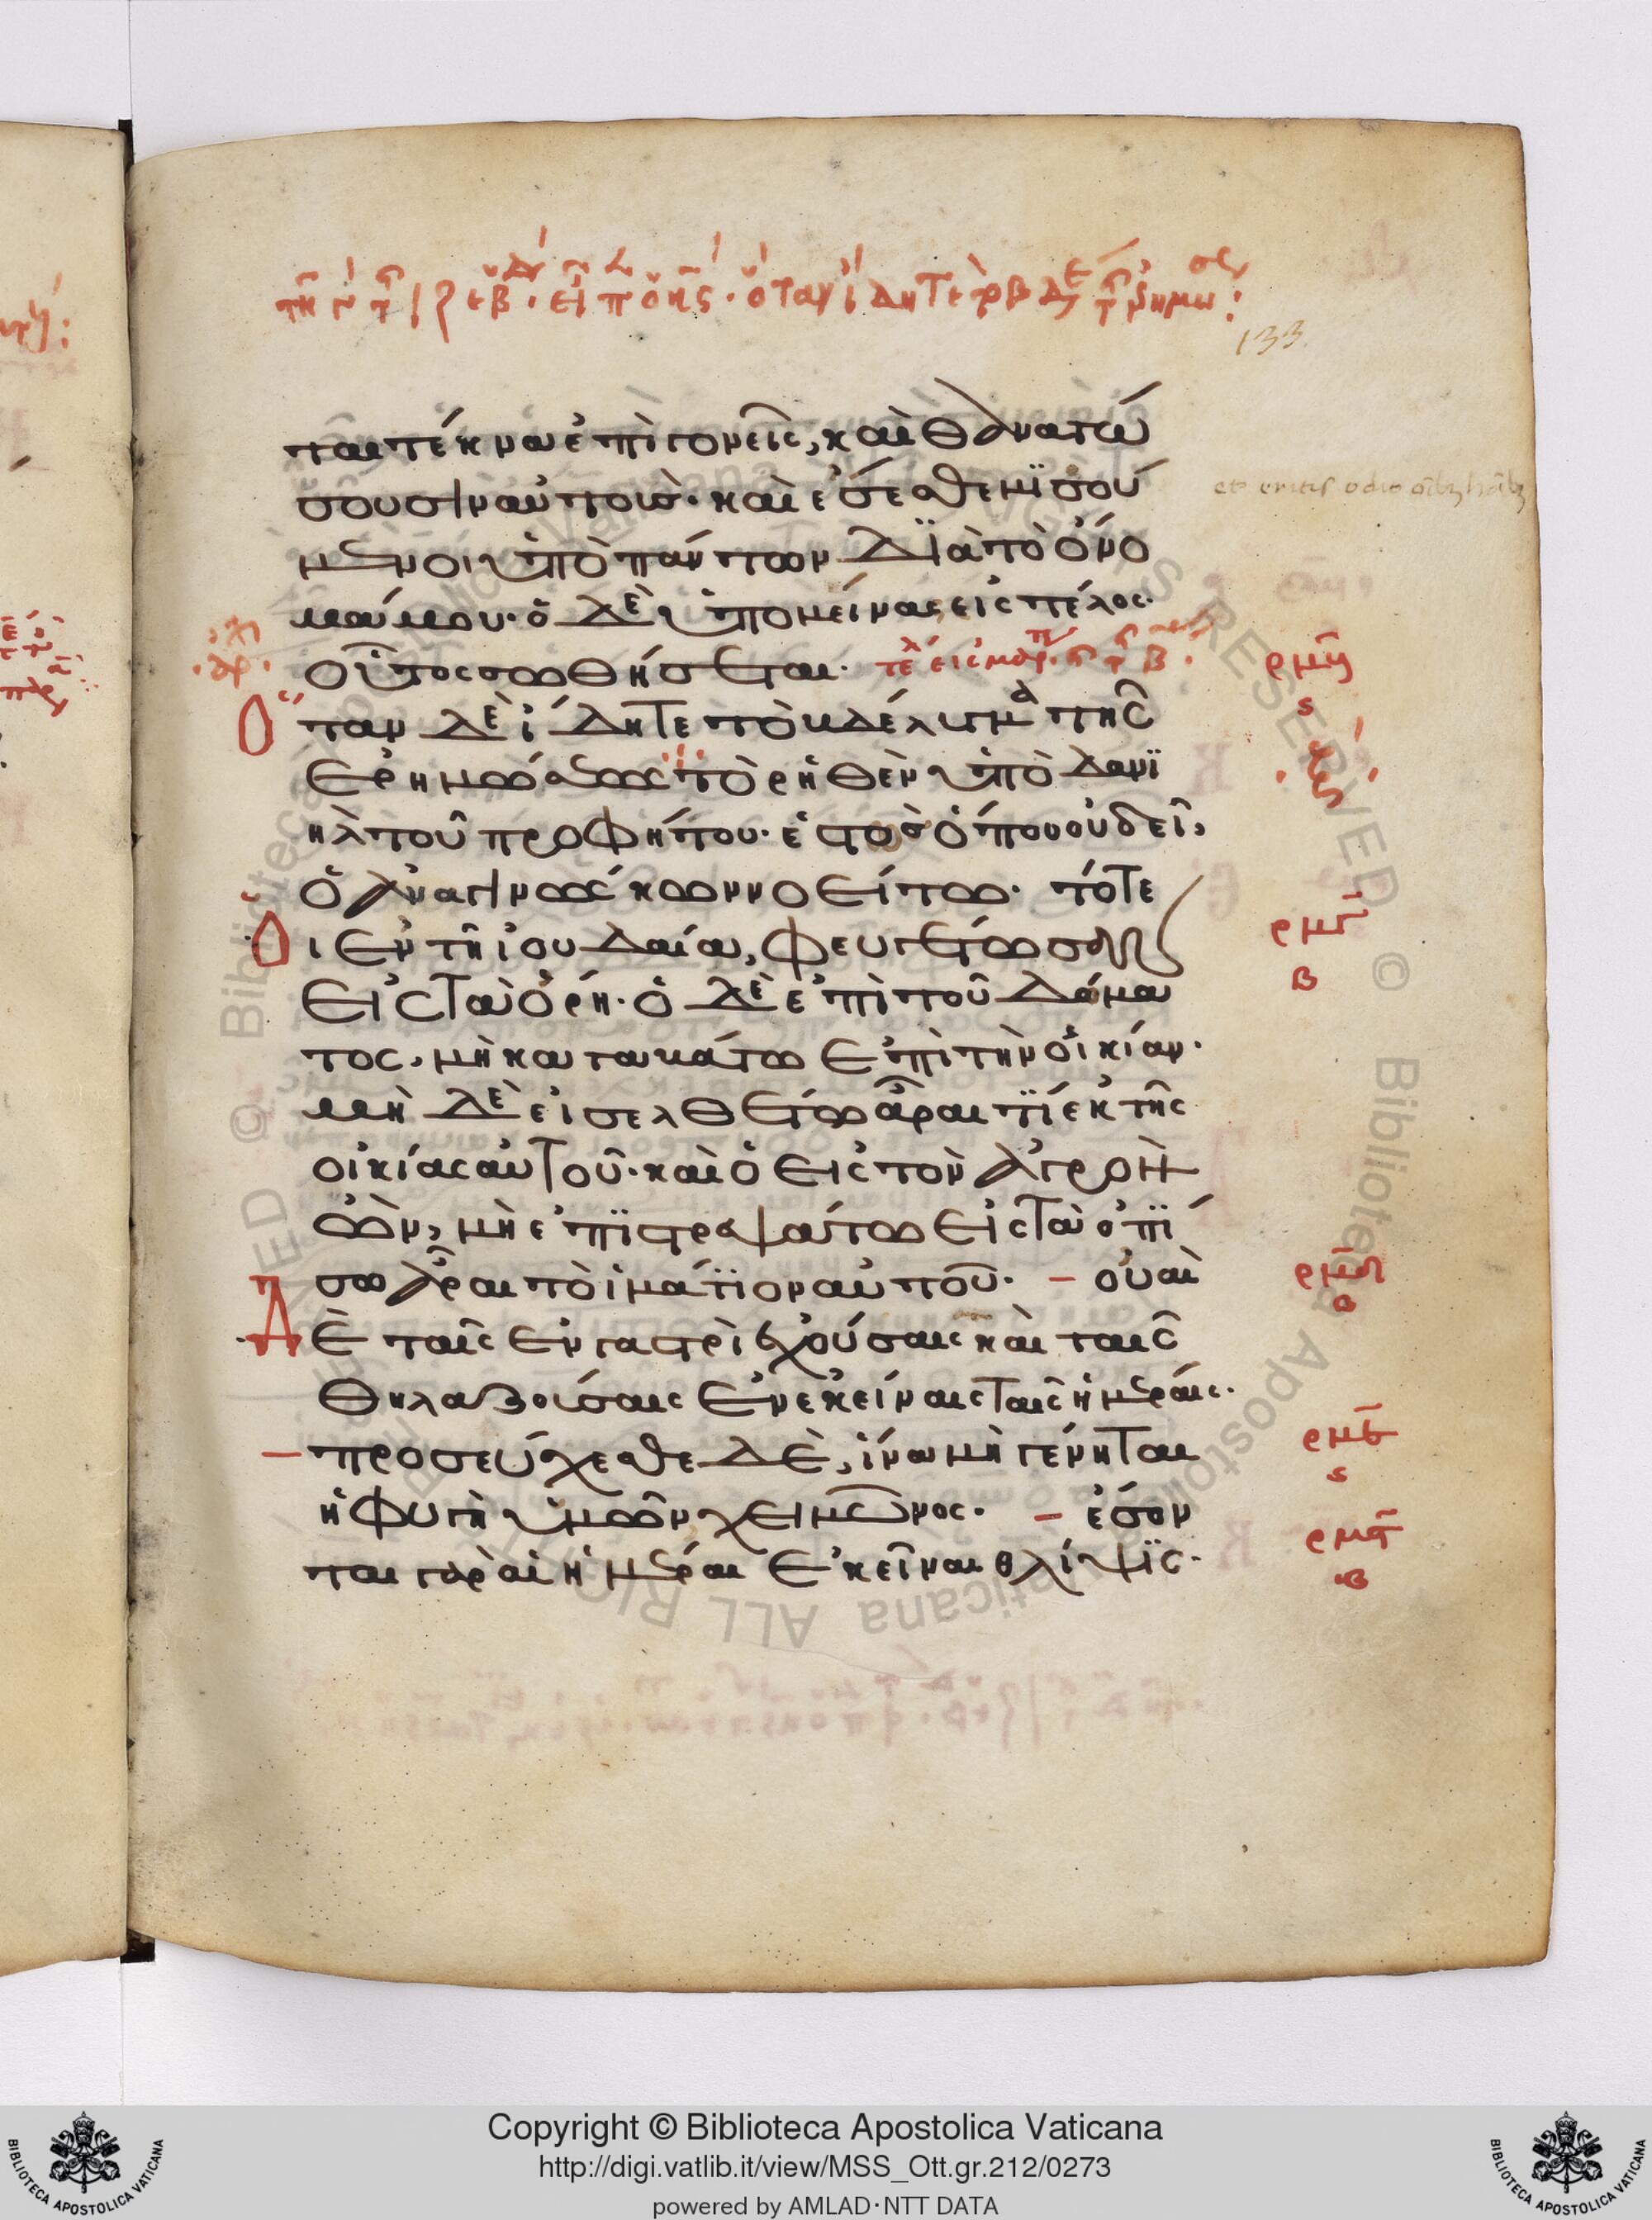 133
ται τέκνα ἐπὶ γονεῖς, καὶ θανατώ
σουσιν αὐτούς· καὶ ἔσεσθε μισού
μενοι ὑπὸ πάντων διὰ τὸ ὄνο
μά μου· ὁ δὲ ὑπομείνας εἰς τέλος·
οὗτος σωθήσεται·
Ὅταν δὲ ἴδητε τὸ βδέλυγμα τῆς
ἐρημώσεως τὸ ῥηθὲν ὑπὸ Δανι
ὴλ τοῦ προφήτου· ἑστὸς ὅπου οὐ δεῖ,
ὁ ἀναγινώσκων νοείτω· τότε
Οἱ ἐν τῇ ἰουδαία, φευγέτωσαν
εἰς τὰ ὄρη· ὁ δὲ ἐπὶ τοῦ δώμα
τος, μὴ καταβάτω ἐπὶ τὴν οἰκίαν·
μὴ δὲ εἰσελθέτω ἆραι τι ἐκ τῆς
οἰκίας αὐτοῦ· καὶ ὁ εἰς τὸν ἀγρὸν
ὢν, μὴ ἐπιστρεψάτω εἰς τὰ ὀπί
σω ἆραι τὸ ἱμάτιον αὐτοῦ· – οὐαὶ
Δὲ ταῖς ἐν γαστρὶ ἐχούσαις καὶ ταῖς
θηλαζούσαις ἐν ἐκείναις ταῖς ἡμέραις·
– προσεύχεσθε δὲ, ἵνα μὴ γένηται
ἡ φυγὴ ὑμῶν χειμῶνος· – ἔσον
ται γὰρ αἱ ἡμέραι ἐκεῖναι θλίψις·
et eritis odio
ρμα
ς
ρμγ
β
ρμε
ς
Copyright © Biblioteca Apostolica Vaticana
http://digi.vatlib.it/view/MSS_Ott.gr.212/0273
powered by AMLAD·NTT DATA
BIBLIOTECA APOSTOLICA VATICANA
BIBLIOTECA APOSTOLICA VATICANA